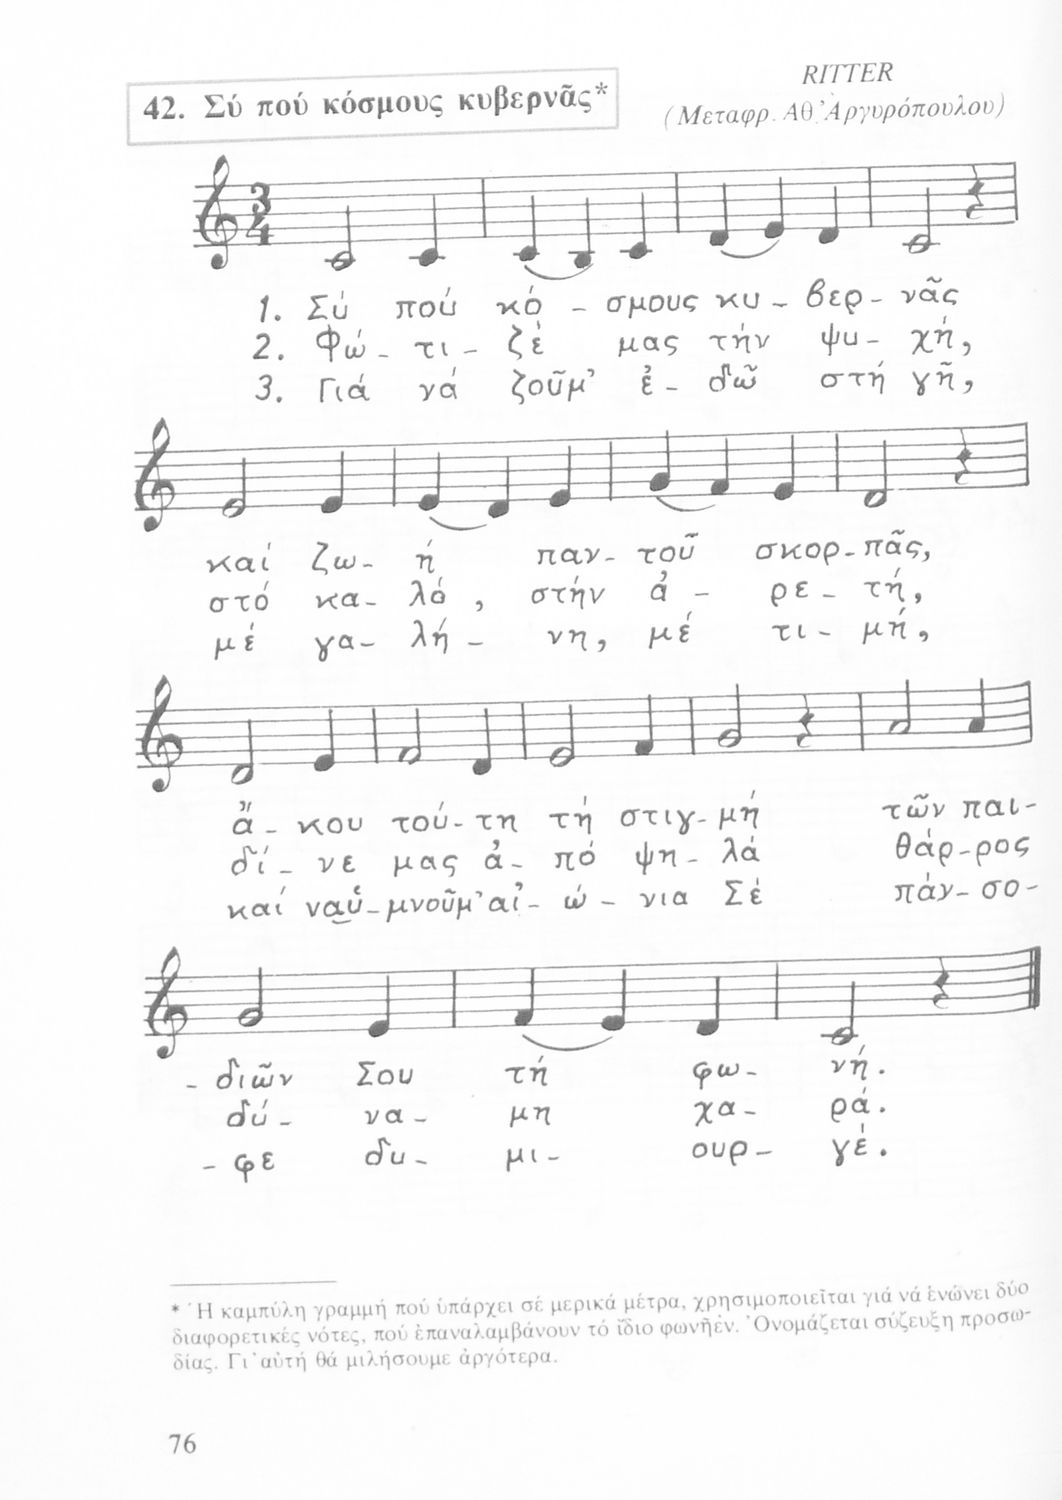 42. Σύ πού κόσμους κυβερνᾶς*
RITTER
(Μεταφρ. Αθ. Ἀργυρόπουλου)
3
4
1. Σύ πού κό - σμους κυ - βερ - νᾶς
2. Φώ - τι - ζέ μας τήν ψυ - χή,
3. Γιά νά ζοῦμ' ἐ - δῶ στή γῆ,
καί ζω - ή παν - τοῦ σκορ - πᾶς,
στό κα - λό, στήν ἀ - ρε - τή,
μέ γα - λή - νη, μέ τι - μή,
ἄ - κου τού - τη τή στιγ - μή τῶν παι -
δί - νε μας ἀ - πό ψη - λά θάρ - ρος
καί ναὑ - μνοῦμ' αἰ - ώ - νια Σέ πάν - σο -
- διῶν Σου τή φω - νή.
δύ - να - μη χα - ρά.
- φε δυ - μι - ουρ - γέ.
* Ἡ καμπύλη γραμμή πού ὑπάρχει σέ μερικά μέτρα, χρησιμοποιεῖται γιά νά ἑνώνει δύο
διαφορετικές νότες, πού ἐπαναλαμβάνουν τό ἴδιο φωνῆεν. Ὀνομάζεται σύζευξη προσω-
δίας. Γι' αὐτή θά μιλήσουμε ἀργότερα.
76